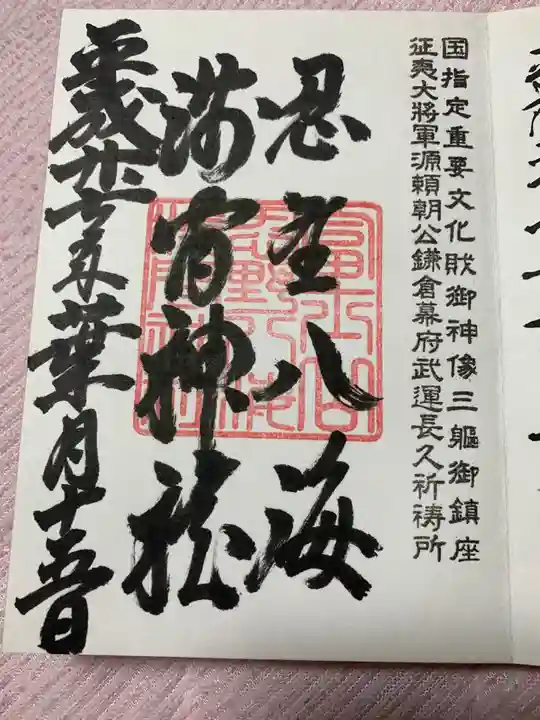 国指定重要文化財御神像三軀御鎮座
征夷大將軍源頼朝公鎌倉幕府武運長久祈祷所
忍野八海
浅間神社
平成廿七年葉月十五日